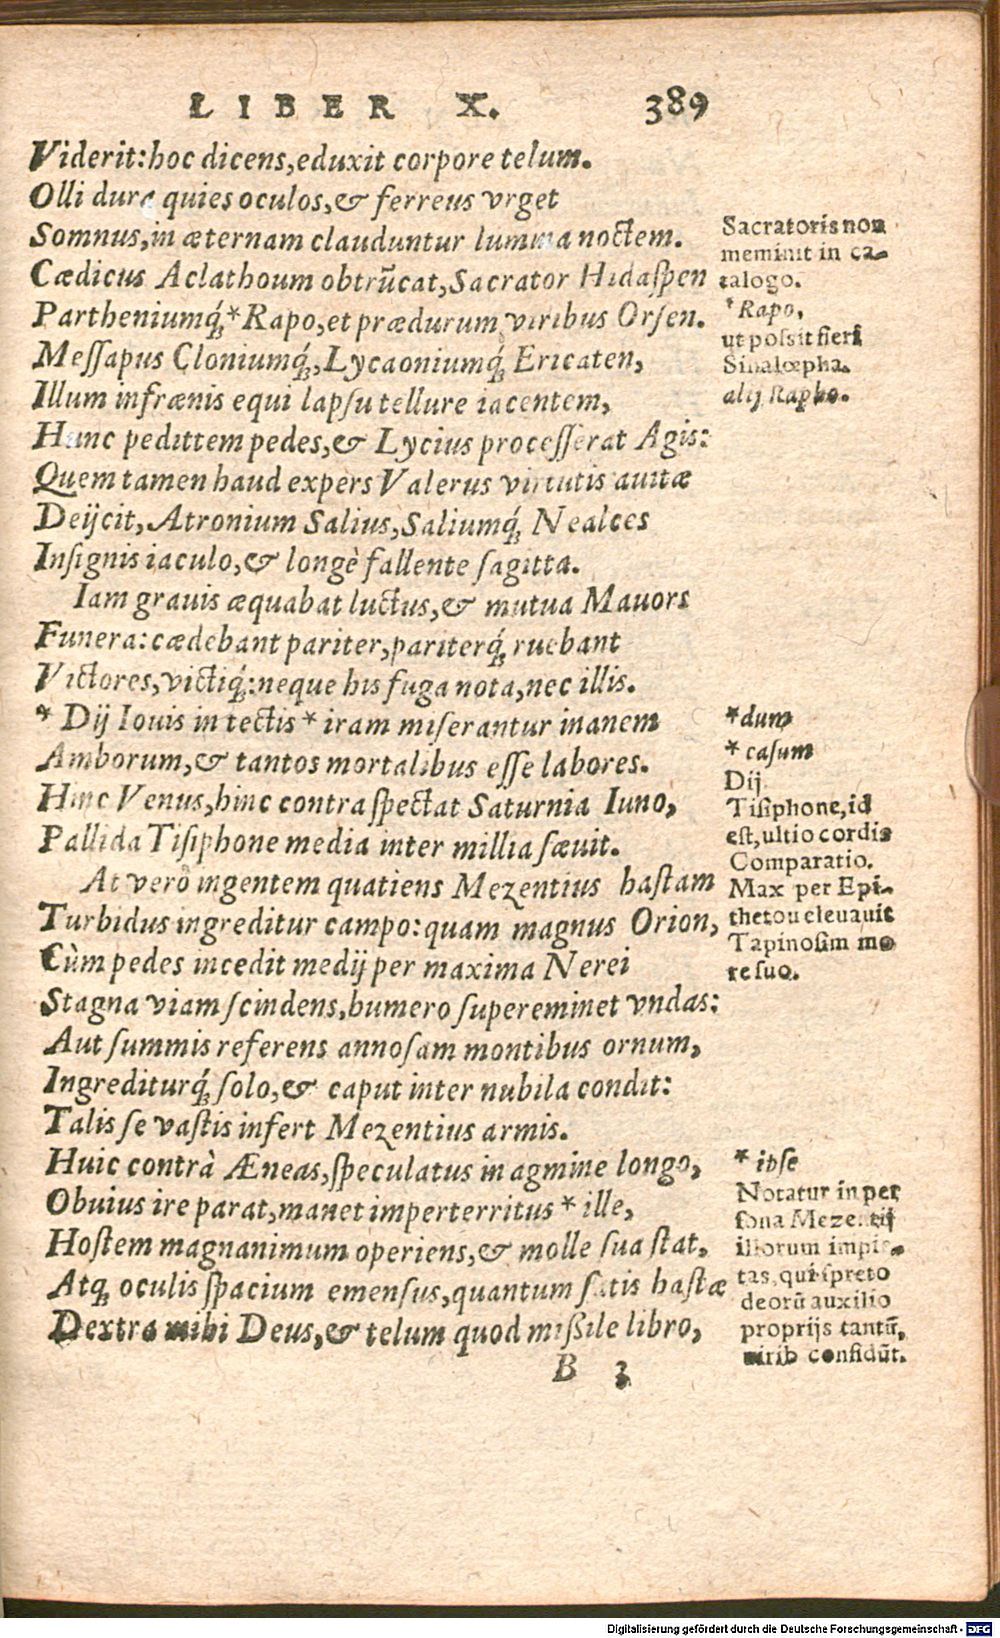 LIBER X. 389
Viderit: hoc dicens, eduxit corpore telum.
Olli dura quies oculos, & ferreus vrget
Somnus, in æternam clauduntur lumina noctem.
Cædicus Aclathoum obtrũcat, Sacrator Hidaſpen
Partheniumq́;* Rapo, et prædurum viribus Orſen.
Meſſapus Cloniumq́;, Lycaoniumq́; Ericaten,
Illum infrænis equi lapſu tellure iacentem,
Hunc pedittem pedes, & Lycius proceſſerat Agis:
Quem tamen haud expers Valerus virtutis auitæ
Deijcit, Atronium Salius, Saliumq́; Nealces
Inſignis iaculo, & longè fallente ſagitta.
Iam grauis æquabat luctus, & mutua Mauors
Funera: cædebant pariter, pariterq́; ruebant
Victores, victiq́;: neque his fuga nota, nec illis.
* Dij Iouis in tectis * iram miſerantur inanem
Amborum, & tantos mortalibus eſſe labores.
Hinc Venus, hinc contra ſpectat Saturnia Iuno,
Pallida Tiſiphone media inter millia ſæuit.
At verò ingentem quatiens Mezentius haſtam
Turbidus ingreditur campo: quam magnus Orion,
Cùm pedes incedit medij per maxima Nerei
Stagna viam ſcindens, humero ſupereminet vndas:
Aut ſummis referens annoſam montibus ornum,
Ingrediturq́; ſolo, & caput inter nubila condit:
Talis ſe vaſtis infert Mezentius armis.
Huic contrà Æneas, ſpeculatus in agmine longo,
Obuius ire parat, manet imperterritus * ille,
Hoſtem magnanimum operiens, & molle ſua ſtat,
Atq; oculis ſpacium emenſus, quantum ſatis haſtæ
Dextra mihi Deus, & telum quod miſsile libro,
B 3
Sacratoris non
meminit in ca-
talogo.
* Rapo,
ut poſsit fieri
Sinalœpha.
alij Rapho.
* dum
* caſum
Dij
Tiſiphone, id
eſt, ultio cordis
Comparatio.
Max per Epi-
thetou eleuauit
Tapinoſim mo
re ſuo.
* ipſe
Notatur in per
ſona Mezentij
illorum impie-
tas, qui ſpreto
deorũ auxilio
proprijs tantũ,
uirib confidũt.
Digitalisierung gefördert durch die Deutsche Forschungsgemeinschaft - DFG